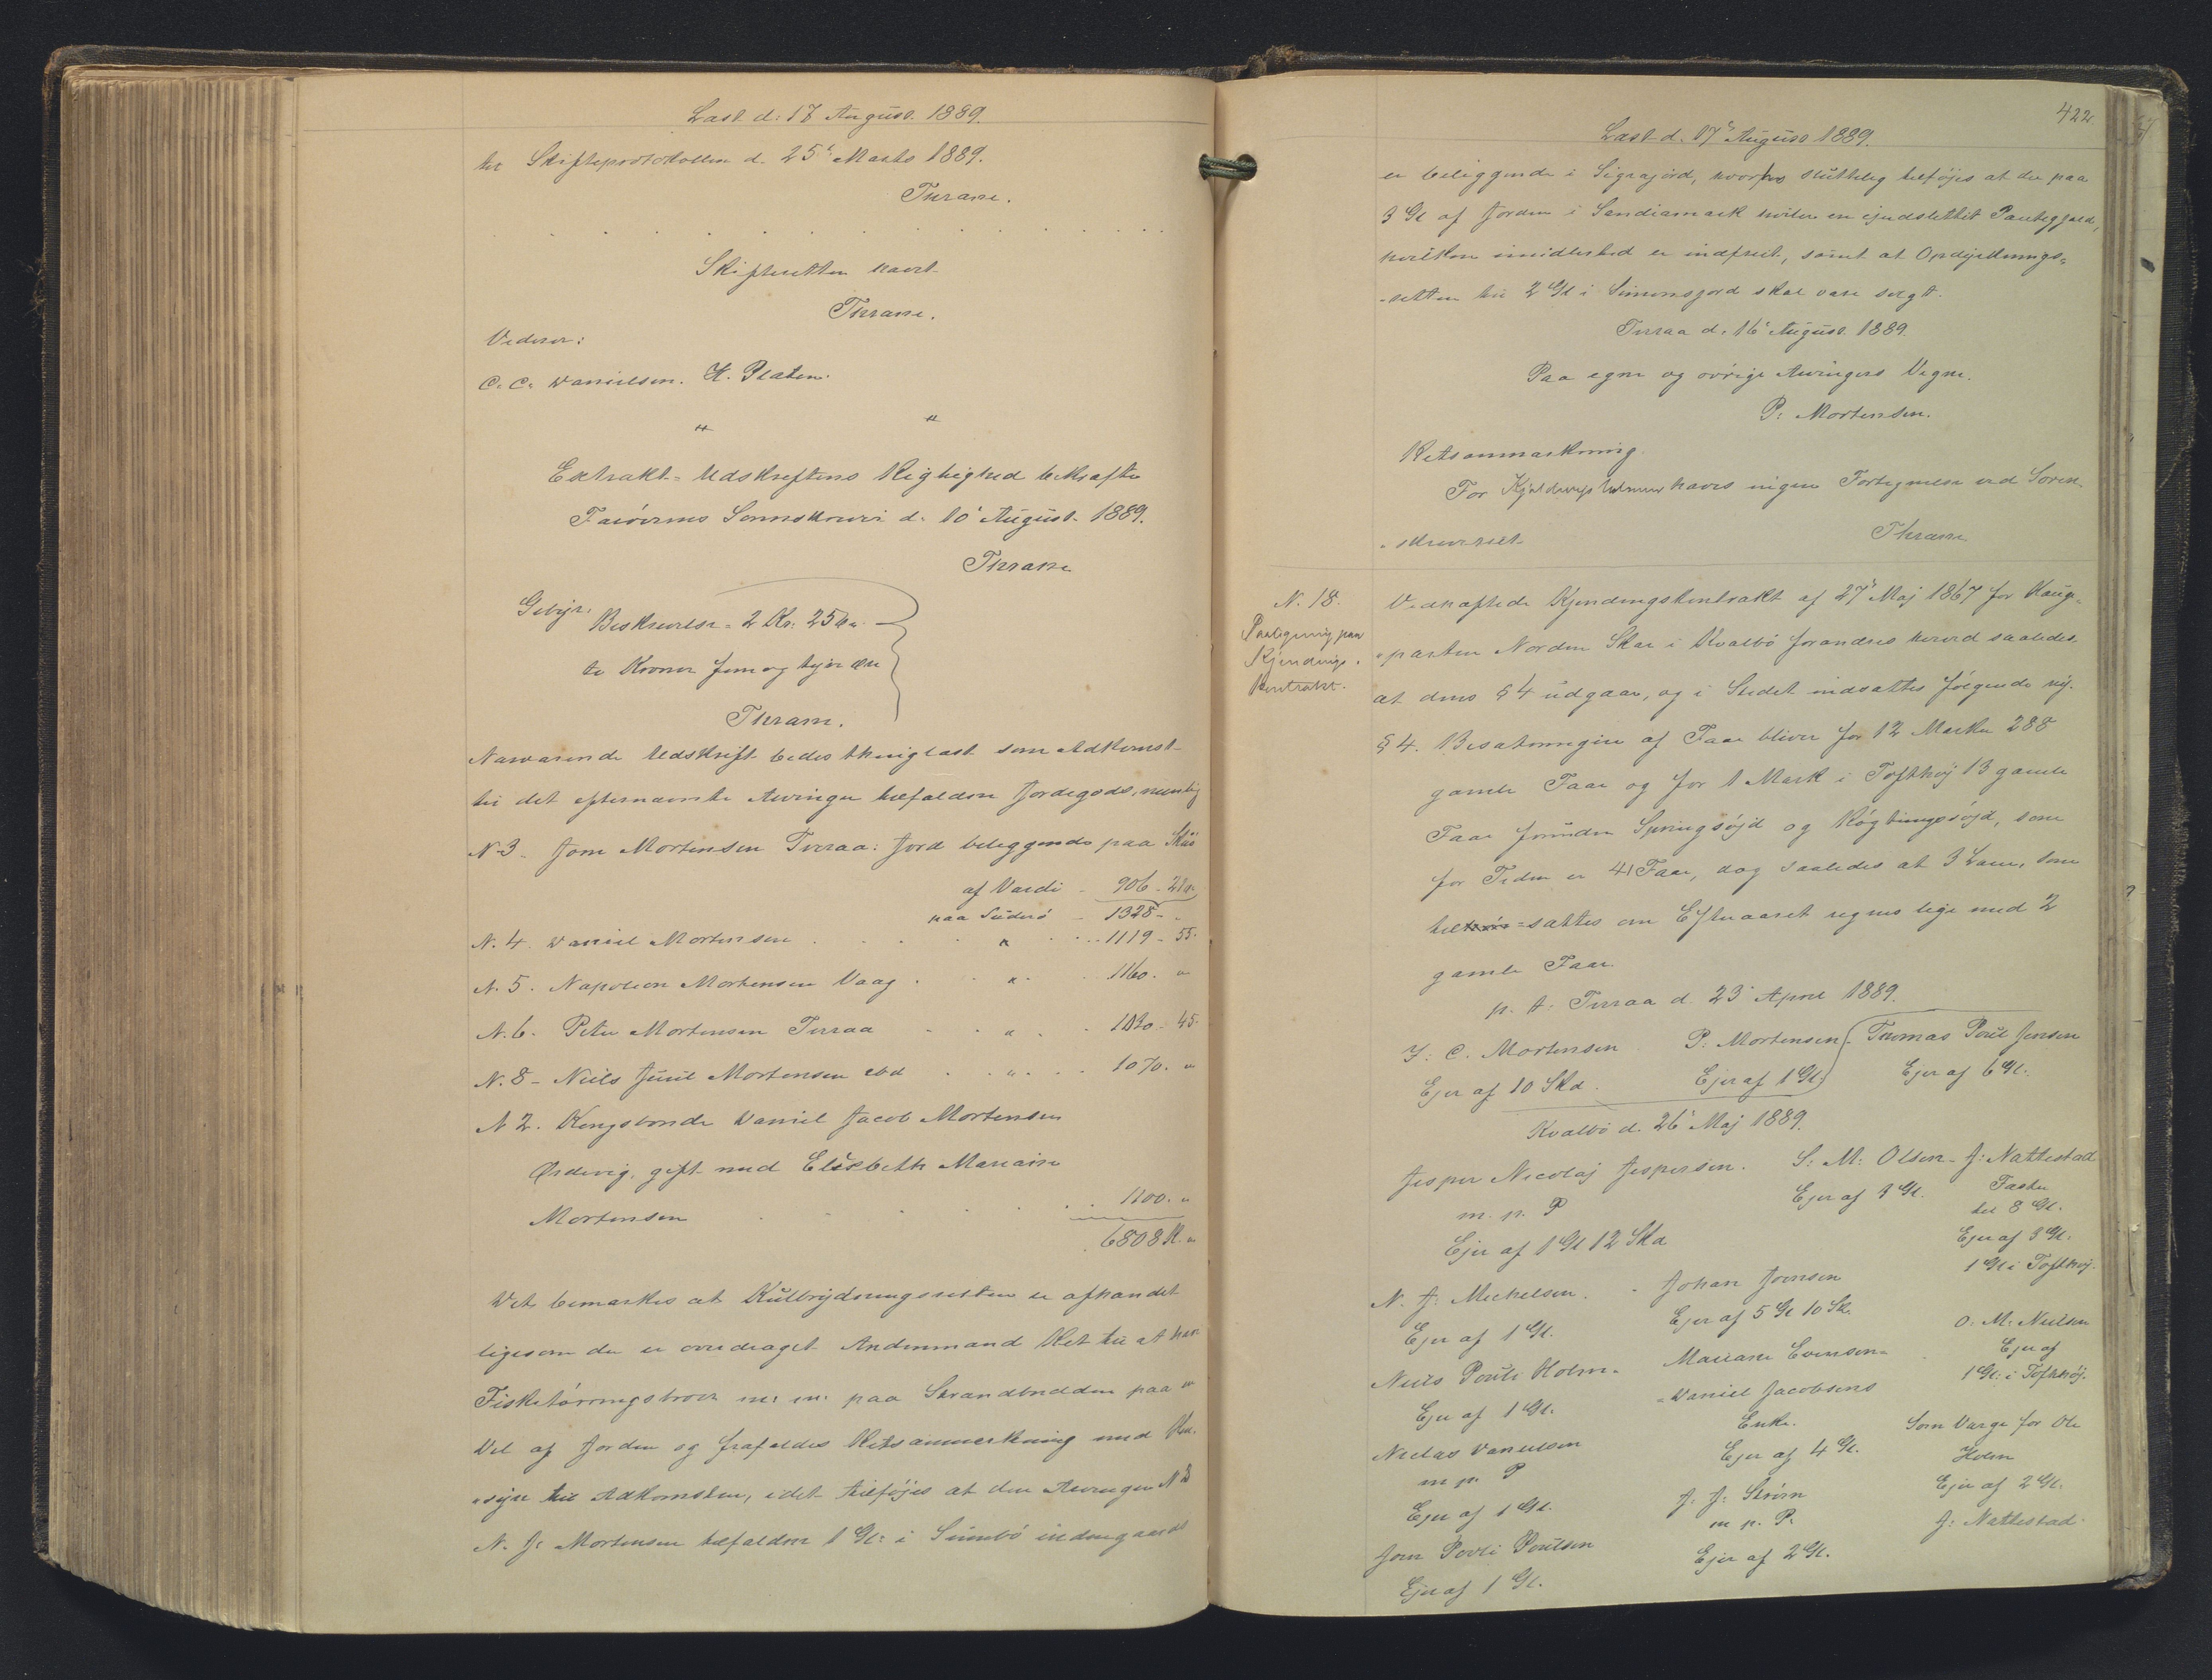 Læst d: 17 August 1889.
til Skifteprotokollen d. 25' Marts 1889.
Thrane.
Skifteretten hævet
Thrane.
Vidner:
C. C. Danielsen. H. Platen.
" "
Extrakt-Udskriftens Rigtighed bekræfter
Færöernes Sorenskriveri d. 10' August 1889.
Thrane
Gebyr:
Beskrivelse = 2 Kr. 25 Øre
to Kroner fem og tyve Øre
Thrane.
Nærværende Udskrift bedes thinglæst som Adkomst
til det efternævnte Arvinger tilfaldne Jordegods, nemlig
N 3. Jonn Mortensen Tveraa: Jord beliggende paa
af Værdi - 906 - 21
paa Suderö - 1328 -
N. 4. Daniel Mortensen . . . " . . 1119 - 55.
N. 5. Napoleon Mortensen Vaag . . " . 1160. "
N. 6. Peter Mortensen Tveraa . . " . 1020 - 45.
N. 8 - Niels Juul Mortensen ibd . . " . . 1070. "
N 2. Kongsbonde Daniel Jacob Mortensen
Ördevig, gift med Elsebeth Mariane
Mortensen . . . . . . 1200. "
6808 K. "
Det bemærkes at Kulbrydningsretten er afhændet
ligesom der er overdraget Andenmand Ret til at have
Fisketörringsbrouk m: m: paa Strandbredden paa en
Del af Jorden og frafaldes Retsanmerkning med Hen-
-syn til Adkomsten, idet tilföjes at den Arvingen N 3
N. J. Mortensen tilfaldne 1 Gl: i Sumbö indengaards
422
Læst d. 17' August 1889.
er beliggende i Sigrajord, hvorhos sluttelig tilföjes at der paa
3 Gl af Jorden i Sandiamark hviler en ejudslettet Pantegjæld,
hvilken imidlertid er indfriet, samt at Opdyrknings-
-retten til 2 Gl i Simonsgjord skal være solgt.
Tveraa d. 16' August 1889.
Paa egne og övrige Arvingers Vegne.
P: Mortensen.
Retsanmærkning.
For haves ingen Fortegnelse ved Soren-
-skriveriet
Thrane
N. 18.
Paategning paa
Kjendings-
kontrakt.
Vedhæftede Kjendingskontrakt af 27' Maj 1867 for Hauge-
-parten Norden Skar i Kvalbö forandres herved saaledes
at dens § 4 udgaar, og i Stedet indsættes fölgende ny.
§ 4. Besætningen af Faar bliver for 12 Marker 288
gamle Faar og for 1 Mark i Tofthöj 13 gamle
Faar foruden Springsöjd og Rögtingssöjd, som
for Tiden er 41 Faar, dog saaledes at 3 Lam, som
til-sættes om Efteraaret regnes lige med 2
gamle Faar.
p. t. Tveraa d. 23' April 1889.
J. C. Mortensen P. Mortensen. Thomas Poul Jensen
Ejer af 10 Skd. Ejer af 1 Gl. Ejer af 6 Gl.
Kvalbö d. 26' Maj 1889.
Jesper Nicolaj Jespersen. S: M: Olsen - J: Nattestad
m. p. P Ejer af 3 Gl. Fæster
til 8 Gl.
Ejer af 1 Gl 12 Skd Ejer af 3 Gl.
1 Gl i Tofthöj.
N. J. Michelsen. Johan Joensen
Ejer af 1 Gl. Ejer af 5 Gl 10 Sk. O. M. Nielsen
Niels Pouli Holm. Mariane Evensen= Ejer af
Ejer af 1 Gl. =Daniel Jacobsens 1 Gl: i Tofthöj.
Enke. Som Værge for Ole
Niclas Danielsen Ejer af 4 Gl. Holm
m. p. P Ejer af 2 Gl.
Ejer af 1 Gl. J. J. Ström
m p. P. J: Nattestad
Jonn Pouli Poulsen Ejer af 2 Gl.
Ejer af 1 Gl.